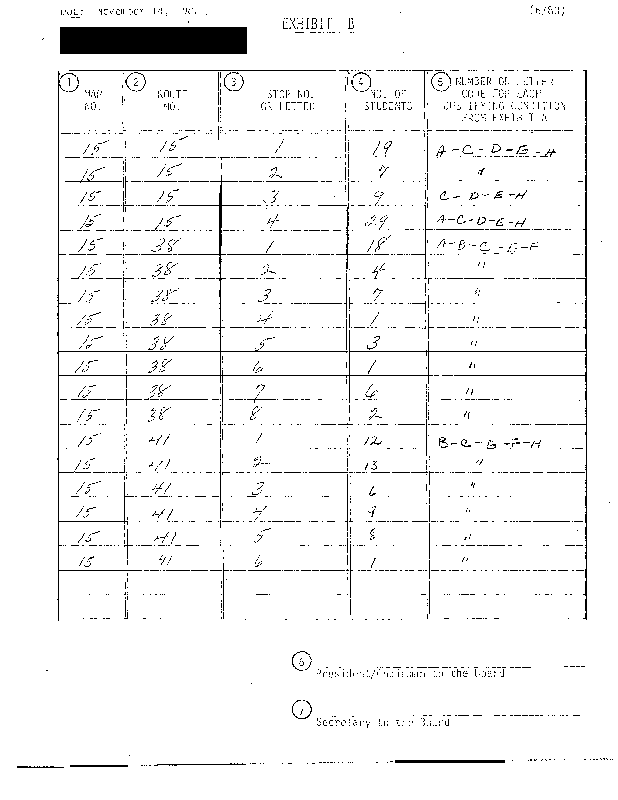 (6/83)
EXHIBIT B
1 2 3 4 5 NUMBER OR LETTER
MAP ROUTE STOP NO. NO. OF CODE FOR EACH
NO. NO. OR LETTER STUDENTS QUALIFYING CONDITION
FROM EXHIBIT A
15 15 1 19 A-C-D-E-H
15 15 2 7 "
15 15 3 9 C-D-E-H
15 15 4 29 A-C-D-E-H
15 38 1 18 A-B-C-E-F
15 38 2 4 "
15 38 3 7 "
15 38 4 1 "
15 38 5 3 "
15 38 6 1 "
15 38 7 6 "
15 38 8 2 "
15 41 1 12 B-C-E-F-H
15 41 2 13 "
15 41 3 6 "
15 41 4 9 "
15 41 5 8 "
15 41 6 1 "
6
President/Chairman to the Board
7
Secretary to the Board